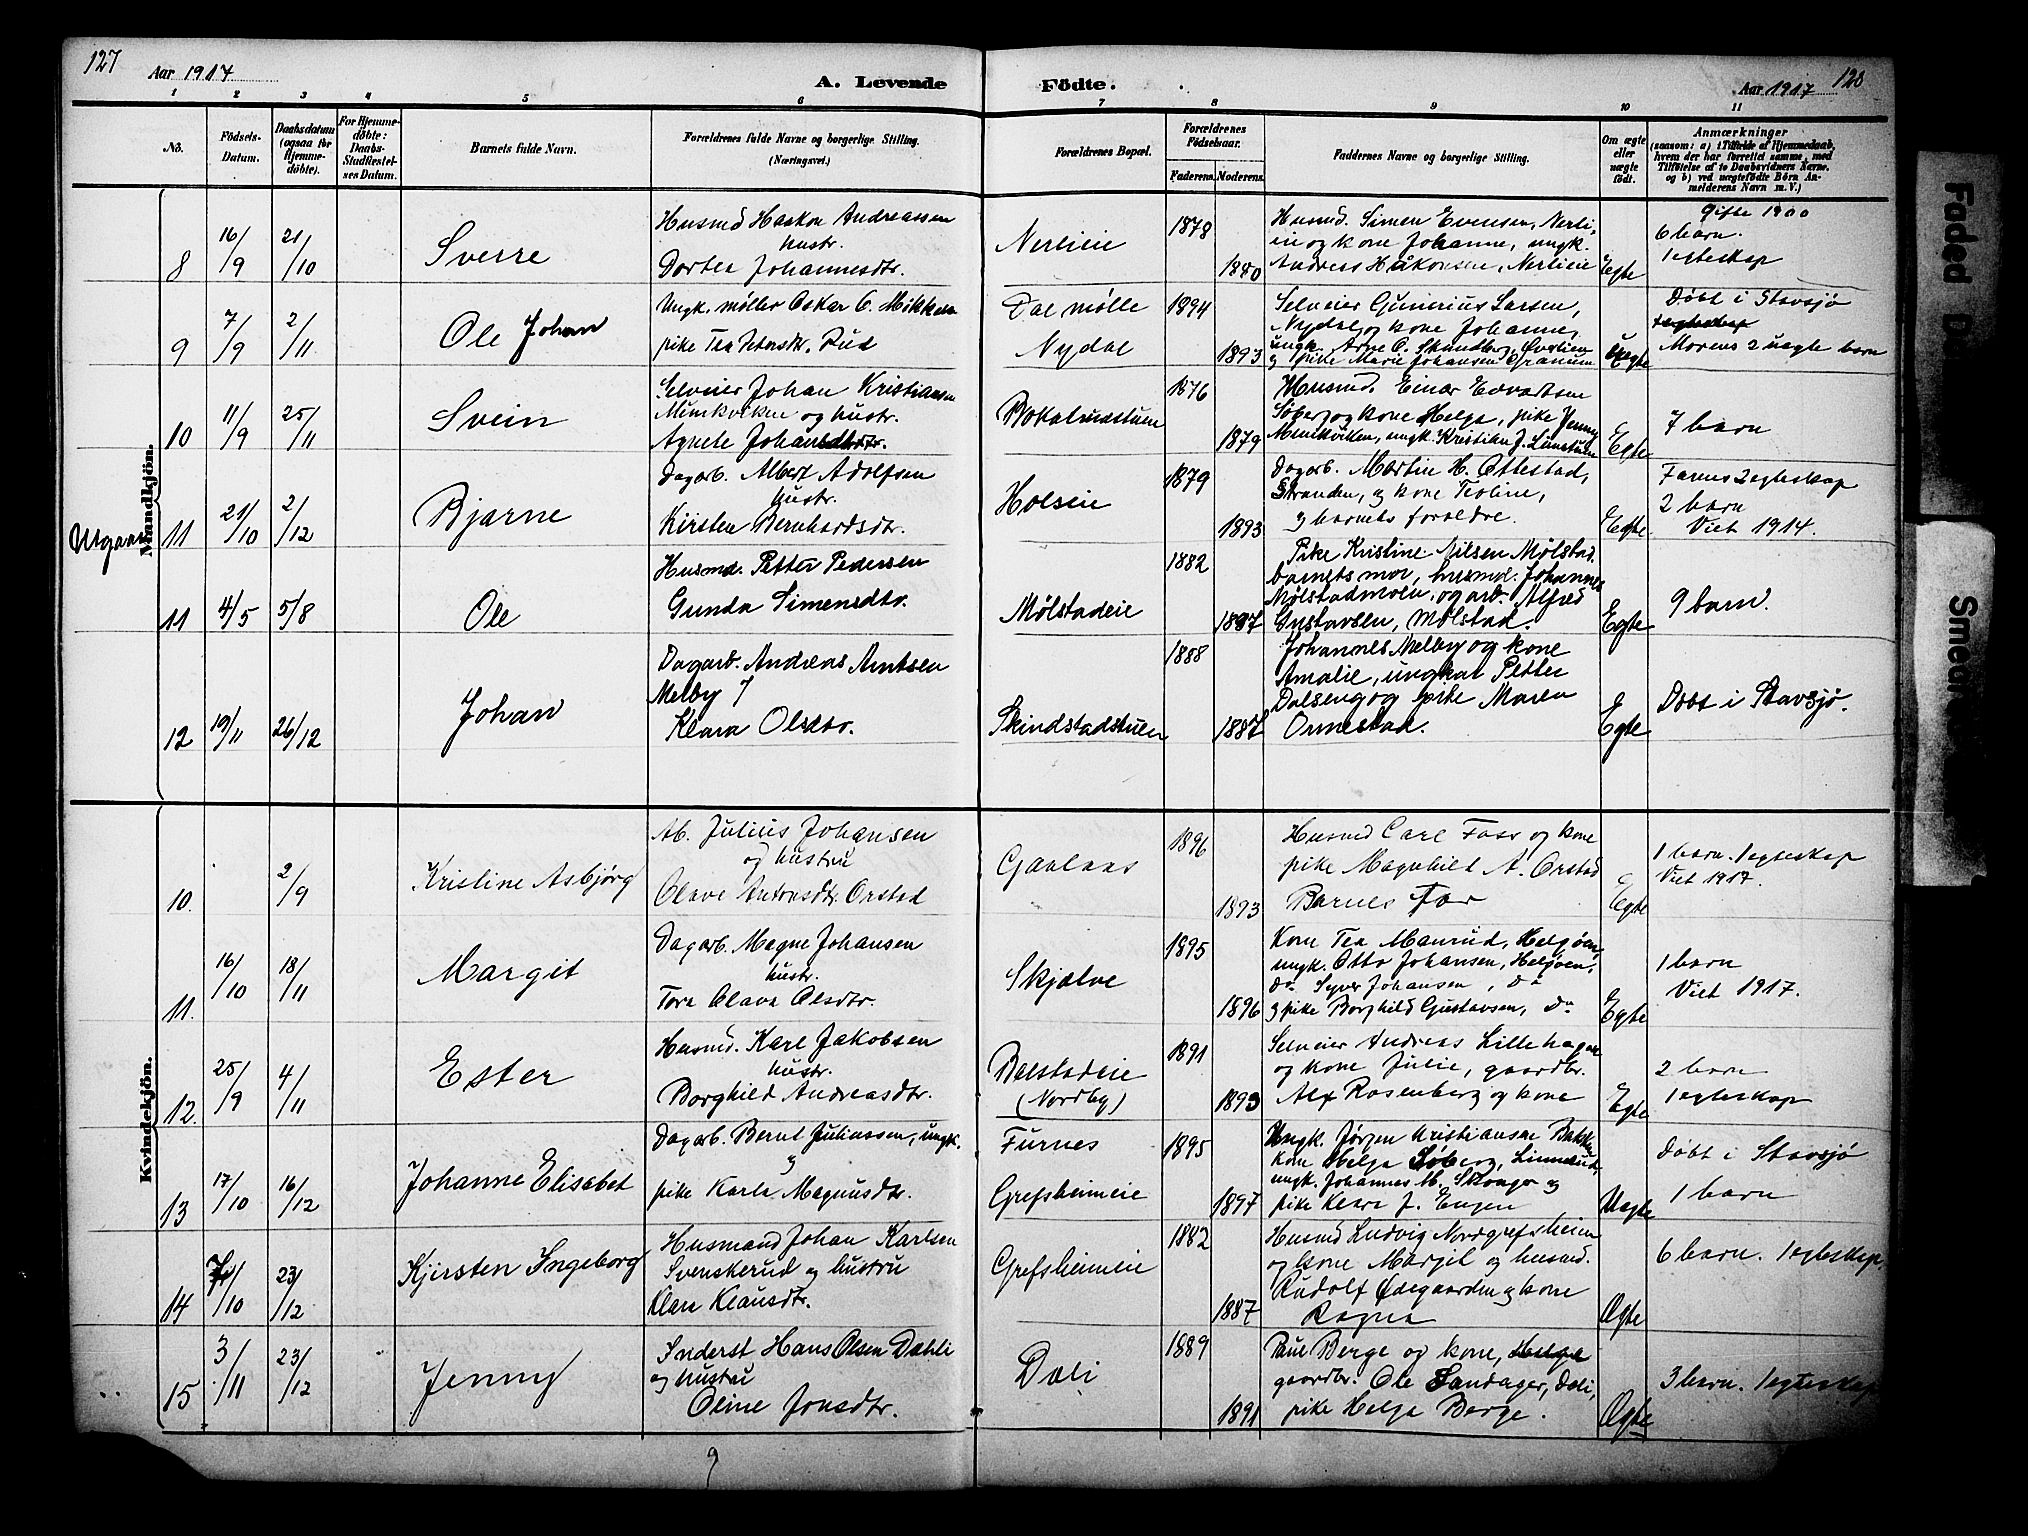 127
Aar 1917
A. Levende
Födte.
Aar 1917
128
1 2 3 4 5 6 7 8 9 10 11
No.
Födsels-Datum.
Daabsdatum (ogsaa for Hjemme-döbte).
For Hjemme-döbte: Daabs-Stadfæstel-ses Datum.
Barnets fulde Navn.
Forældrenes fulde Navne og borgerlige Stilling.
(Næringsvei.)
Forældrenes Bopæl.
Forældrenes Födselsaar.
Faderens. Moderens.
Faddernes Navne og borgerlige Stilling.
Om ægte eller uægte födt.
Anmærkninger
(saasom: a) i Tilfælde af Hjemmedaab,
hvem der har forrettet samme, med
Tilföielse af to Daabsvidners Navne,
og b) ved uægtefödte Börn An-
melderens Navn m. V.)
Mandkjön.
8 16/9 21/10 Sverre
Husmd Haakon Andreassen
hustr.
Dortea Johannesdtr.
Nerlieie
1878
1880
Husmd. Simen Evensen, Nerli-
eie og kone Johanne, ungk.
Andreas Håkonsen, Nerlieie
Egte
Gifte 1900
6 barn.
1 egteskap
9 7/9 2/11 Ole Johan
Ungk. møller Oskar O. Mikkelsen
pike Tea Petersdtr. Rud
Dal mølle
Nydal
1894
1893
Selveier Gunerius Larsen,
Nydal og kone Johanne,
ungk. Arne O. Skundberg, Øverlien
og pike Marie Johansen Granum
Uegte
Døbt i Stavsjø
Morens 2 uegte barn
10 11/9 25/11 Svein
Selveier Johan Kristiansen
Munkviken og hustr.
Agnete Johansdtr.
1876
1879
Husmd. Einar Edvardsen
Søberg og kone Helga, pike Jenny
Munkviken, ungk. Kristian J.
Egte
7 barn
Utgaar
11 21/10 2/12 Bjarne
Dagarb. Albert Adolfsen
hustr.
Kirsten Bernhardsdtr.
Holseie
1879
1893
Dagarb. Martin H. Ottestad,
Stranden, og kone Teoline,
og barnets foreldre.
Egte
Farens 2 egteskap
2 barn
Viet 1914.
11 4/5 5/8 Ole
Husmd. Petter Pedersen
Gunda Simensdtr.
Mølstadeie
1882
1887
Pike Kristine Nilsen Mølstad,
barnets mor, husmd. Johannes
Mølstadmoen, og arb. Alfred
Gustavsen, Mølstad.
Egte
9 barn.
12 19/11 26/12 Johan
Dagarb. Andreas Arntsen
Melby
Klara Olsdtr.
Skindstadstuen
1888
1887
Johannes Melby og kone
Amalie, ungkar Petter
Dalseng og pike Maren
Ormestad.
Egte
Døbt i Stavsjø.
Kvindekjön.
10. 2/9 Kristine Asbjørg
Ab. Julius Johansen
og hustru
Olave Antonsdtr. Orstad
Gaalaas
1896
1893
Husmd Carl Foss og kone
pike Magnhild A. Orstad
Barnets Far
Egte
1 barn. 1 egteskap
Viet 1917.
11. 16/10 18/11 Margit
Dagarb. Magne Johansen
hustr.
Tora Olava Olsdtr.
Skjælve
1895
1896
Kone Tea Manrud, Helgøen,
ungk. Otto Johansen, Helgøen,
do Syver Johansen, do
og pike Borghild Gustavsen, do
Egte
1 barn
Viet 1917.
12. 25/9 4/11 Ester
Husmd. Karl Jakobsen
hustr.
Borghild Andreasdtr.
Balstadeie
(Nordby)
1891
1893
Selveier Andreas Lillehagen
og kone Julie, gaardbr.
Alf Rosenberg og kone
Egte
2 barn
1 egteskap
13 17/10 16/12 Johanne Elisabet
Dagarb. Bernt Juliussen, ungk.
og
pike Karla Magnusdtr.
Furnes
Grefsheimeie
1895
1897
Ungk. Jørgen Kristiansen Bakke
kone Helga Søberg,
ungk. Johannes M. og
pike Klara J. Engen
Uegte
Døbt i Stavsjø
1 barn
14 7/10 23/12 Kjirsten Ingeborg
Husmand Johan Karlsen
Svenskerud og hustru
Klara Klausdtr.
Grefsheimeie
1882
1887
Husmd Ludvig Nordgrefsheim
og kone Margit og husmd.
Rudolf Ødegaarden og kone
Ragna
Ægte
6 barn. 1 egteskap
15 3/11 23/12 Jenny
Inderst Hans Olsen Dæhli
og hustru
Oline Jonsdtr.
Dæli
1889
1891
Paul Berge og kone, Helga
gaardbr. Ole Sandager, Dæli,
pike Helga Berge.
Ægte
3 barn. 1 egteskap
9
Faded
Smear